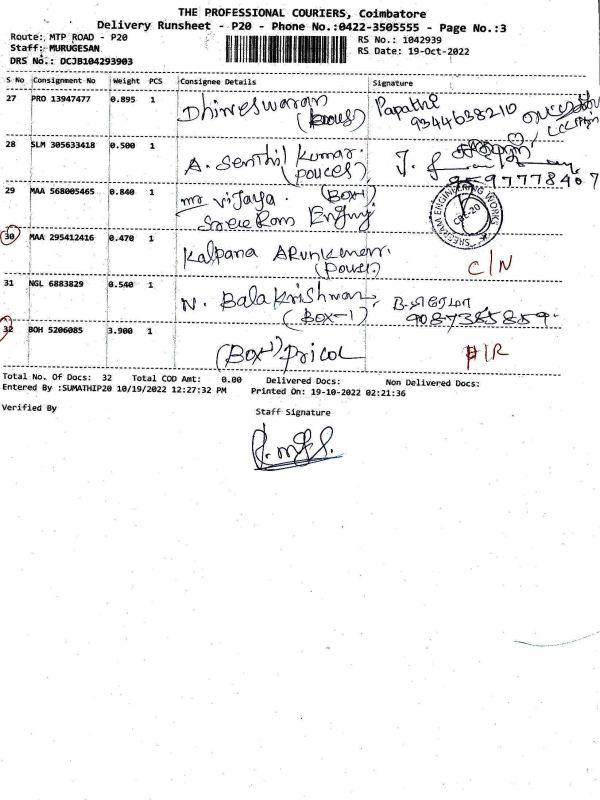 THE PROFESSIONAL COURIERS, Coimbatore
Delivery Runsheet - P20 - Phone No.:0422-3505555 - Page No.:3
Route: MTP ROAD - P20
RS No.: 1042939
Staff: MURUGESAN
RS Date: 19-Oct-2022
DRS No.: DCJB104293903
S No Consignment No Weight PCS Consignee Details Signature
27 PRO 13947477 0.895 1 Dhineswaran Papathi
9344638210
28 SLM 305633418 0.500 1 A. Senthil Kumar.
(Pouces)
9597778407
29 MAA 568005465 0.840 1 mr vijaya. (Box-1)
Sree Ram Enging
SREERAM ENGINEERING WORKS
CBE-29
30 MAA 295412416 0.470 1 Kalpana ARunkumarr.
C/N
31 NGL 6883829 0.540 1 N. Balakrishnan, B-பிரேமா
(Box-1) 9087385859.
32 BOH 5206085 3.900 1 (Box-1) Pricol
Total No. Of Docs: 32 Total COD Amt: 0.00 Delivered Docs: Non Delivered Docs:
Entered By :SUMATHIP20 10/19/2022 12:27:32 PM Printed On: 19-10-2022 02:21:36
Verified By
Staff Signature